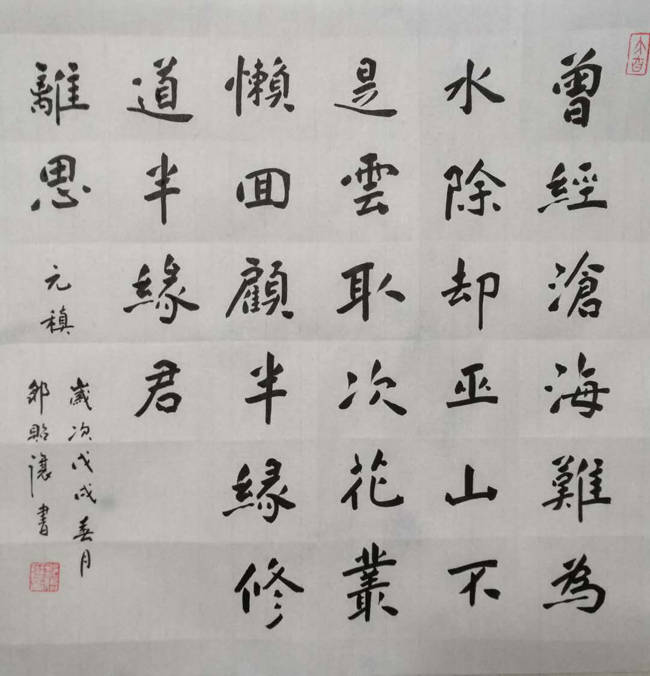 曾經滄海難為
水除却巫山不
是雲取次花叢
懶回顧半緣修
道半緣君
離思 元稹
歲次戊戌春月
鄒照讓書